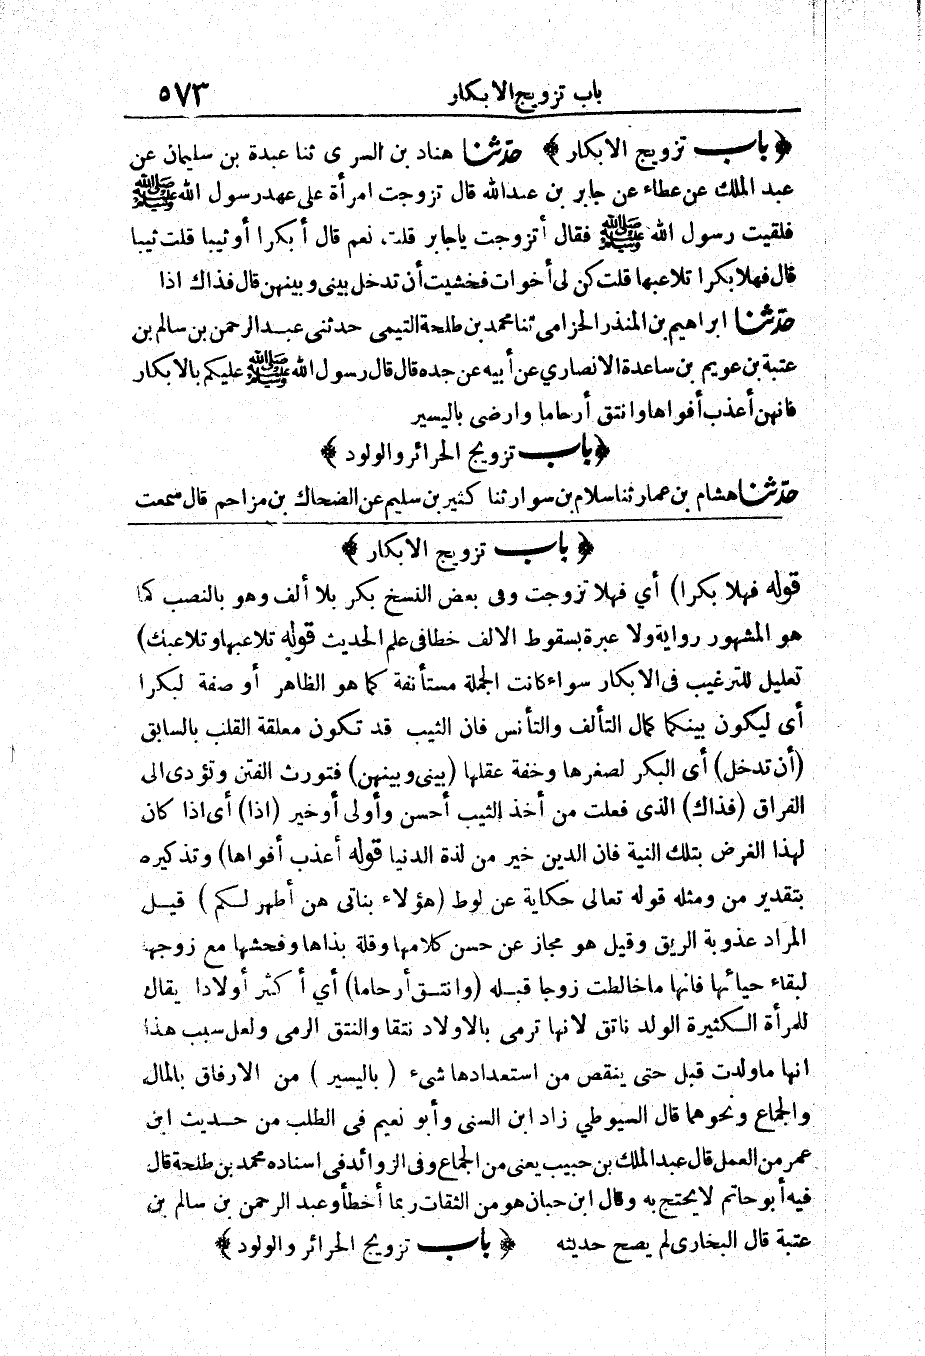 باب تزويج الابكار ٥٧٣
﴿باب تزويج الابكار﴾ حدّثنا هناد بن السرى ثنا عبدة بن سليمان عن
عبد الملك عن عطاء عن جابر بن عبدالله قال تزوجت امرأة على عهد رسول الله ﷺ
فلقيت رسول الله ﷺ فقال أتزوجت ياجابر قلت نعم قال أبكرا أو ثيبا قلت ثيبا
قال فهلا بكرا تلاعبها قلت كن لى أخوات فخشيت أن تدخل بينى وبينهن قال فذاك اذا
حدّثنا ابراهيم بن المنذر الحزامى ثنا محمد بن طلحة التيمى حدثنى عبد الرحمن بن سالم بن
عتبة بن عويم بن ساعدة الانصاري عن أبيه عن جده قال قال رسول الله ﷺ عليكم بالابكار
فانهن أعذب أفواها وانتق أرحاما وارضى باليسير
﴿باب تزويج الحرائر والولود﴾
حدّثنا هشام بن عمار ثنا سلام بن سوار ثنا كثير بن سليم عن الضحاك بن مزاحم قال سمعت
﴿باب تزويج الابكار﴾
قوله فهلا بكرا) أي فهلا تزوجت وفى بعض النسخ بكر بلا ألف وهو بالنصب كما
هو المشهور رواية ولا عبرة بسقوط الالف خطا فى علم الحديث قوله تلاعبها وتلاعبك)
تعليل للترغيب فى الابكار سواء كانت الجملة مستأنفة كما هو الظاهر أو صفة لبكرا
أى ليكون بينكما كمال التألف والتأنس فان الثيب قد تكون معلقة القلب بالسابق
(أن تدخل) أى البكر لصغرها وخفة عقلها (بينى وبينهن) فتورث الفتن وتؤدى الى
الفراق (فذاك) الذى فعلت من أخذ الثيب أحسن وأولى أو خير (اذا) أى اذا كان
لهذا الغرض بتلك النية فان الدين خير من لذة الدنيا قوله أعذب أفواها) وتذكيره
بتقدير من ومثله قوله تعالى حكاية عن لوط (هؤلاء بناتى هن أطهر لكم) قيل
المراد عذوبة الريق وقيل هو مجاز عن حسن كلامها وقلة بذاها وفحشها مع زوجها
لبقاء حيائها فانها ماخالطت زوجا قبله (وانتق أرحاما) أي أكثر أولادا يقال
للمرأة الكثيرة الولد ناتق لانها ترمى بالاولاد نتقا والنتق الرمى ولعل سبب هذا
انها ماولدت قبل حتى ينقص من استعدادها شىء (باليسير) من الارفاق بالمال
والجماع ونحوهما قال السيوطي زاد ابن السنى وأبو نعيم فى الطلب من حديث ابن
عمر من العمل قال عبد الملك بن حبيب يعنى من الجماع وفى الزوائد فى اسناده محمد بن طلحة قال
فيه أبو حاتم لا يحتج به وقال ابن حبان هو من الثقات ربما أخطأ وعبد الرحمن بن سالم بن
عتبة قال البخارى لم يصح حديثه ﴿باب تزويج الحرائر والولود﴾